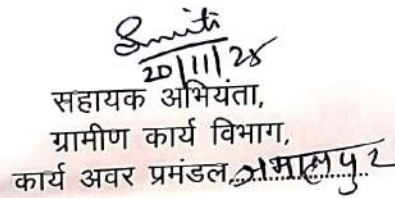 Smriti
20/11/25
सहायक अभियंता,
ग्रामीण कार्य विभाग,
कार्य अवर प्रमंडल, जमालपुर